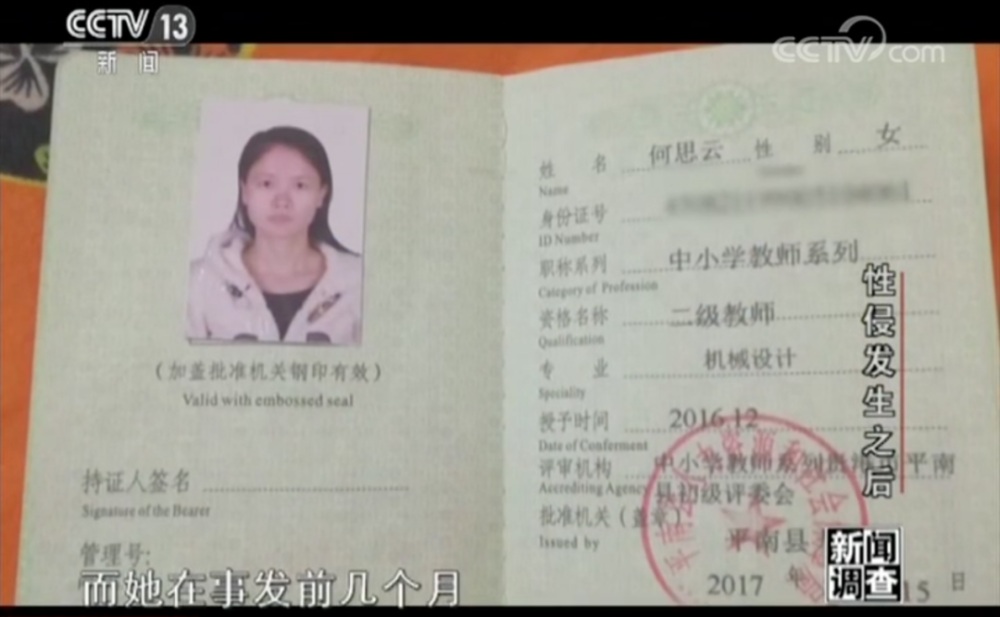 CCTV 13
新闻
CCTV.com
姓 名 何思云 性 别 女
Name
身份证号
ID Number
职称系列 中小学教师系列
Category of Profession
资格名称 二级教师
Qualification
专 业 机械设计
Speciality
授予时间 2016.12
Date of Conferment
评审机构 中小学教师系列贵港市平南
Accrediting Agency 县初级评委会
批准机关（盖章） 平南县
Issued by
2017 年 15 日
（加盖批准机关钢印有效）
Valid with embossed seal
持证人签名
Signature of the Bearer
管理号:
性侵发生之后
新闻
调查
而她在事发前几个月